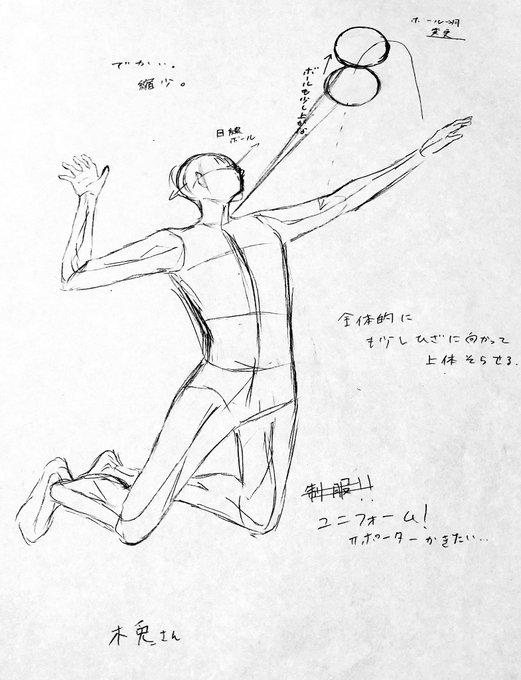 でかい。
縮少。
ボールの羽
変更
ボールも少し上かな
目線
ボール
全体的に
も少しひざに向かって
上体そらせる.
制服!!
ユニフォーム!
サポーターかきたい…
木兎さん